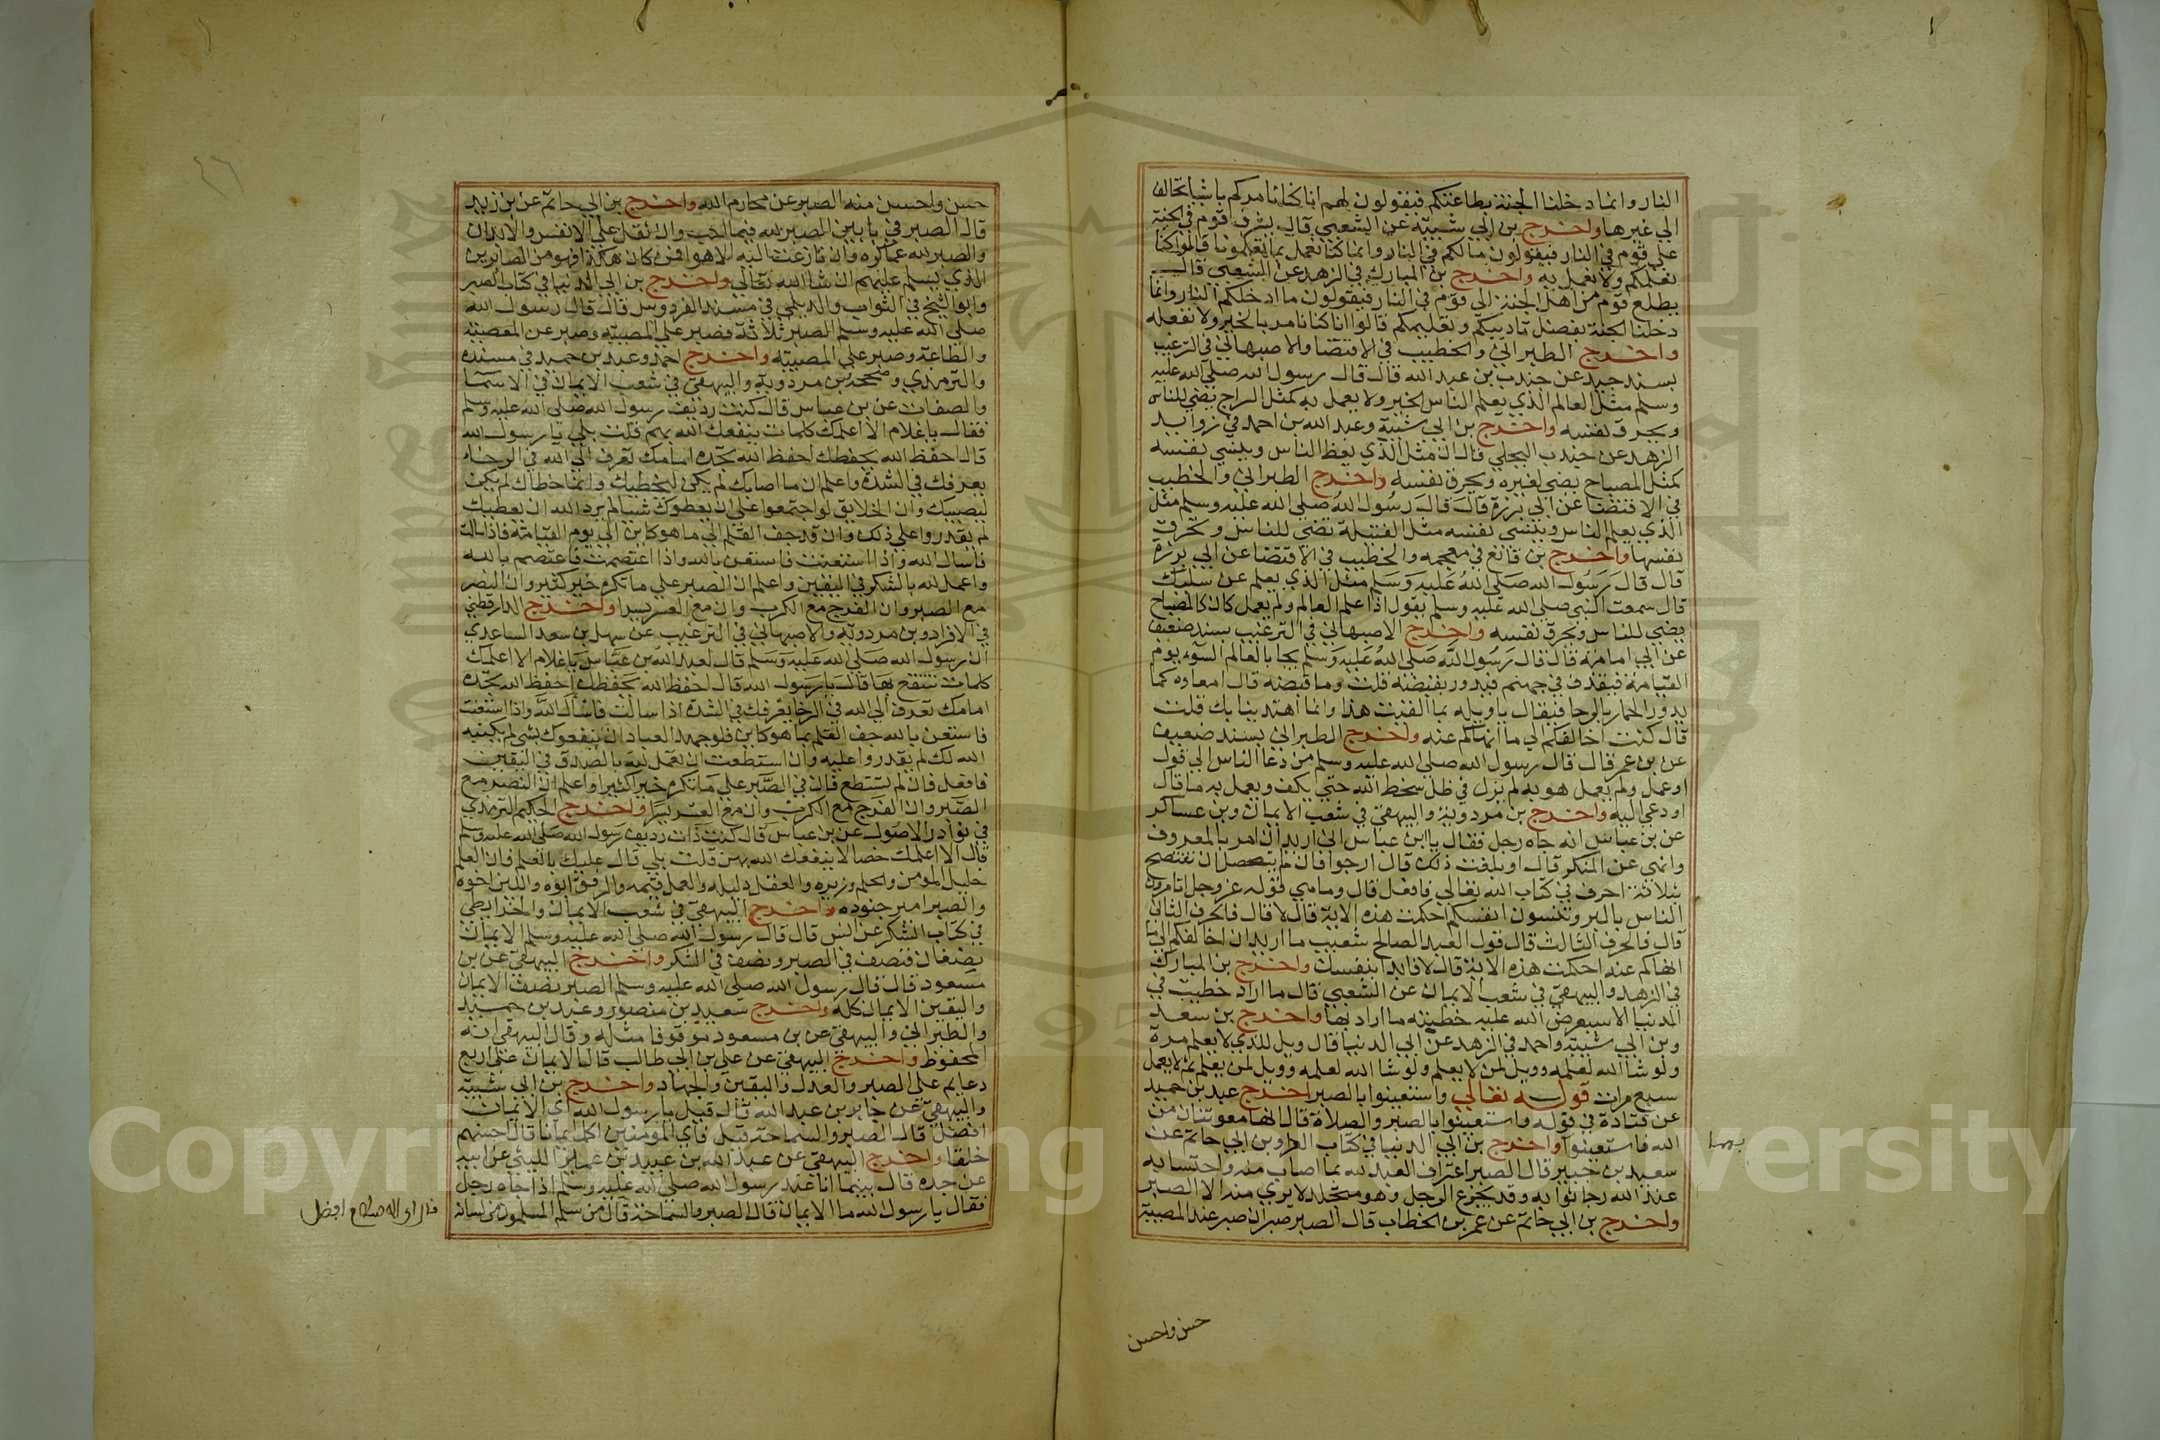 النار وانما دخلنا الجنة بطاعتكم فيقولون لهم انا كنا نامركم باشيا نخالف
الي غيرها واخرج بن ابي شيبة عن الشعبي قال يشرف قوم في الجنة
علي قوم في النار فيقولون مالكم في النار وانما كنا نعمل بما تعلمونا قالوا كنا
نعلمكم ولا نعمل به واخرج بن المبارك في الزهد عن الشعبي قال
يطلع قوم من اهل الجنة الي قوم في النار فيقولون ما ادخلكم النار وانما
دخلنا الجنة بفضل تاديبكم وتعليمكم قالوا انا كنا نامر بالخير ولا نفعله
واخرج الطبراني والخطيب في الاقتضا والاصبهاني في الترغيب
بسند جيد عن جندب بن عبد الله قال قال رسول الله صلي الله عليه
وسلم مثل العالم الذي يعلم الناس الخير ولا يعمل به كمثل السراج يضي للناس
ويحرق نفسه واخرج بن ابي شيبة وعبد الله بن احمد في زوايد
الزهد عن جندب البجلي قال ان مثل الذي يعظ الناس وينسي نفسه
كمثل المصباح يضي لغيره ويحرق نفسه واخرج الطبراني والخطيب
في الاقتضا عن ابي برزة قال قال رسول الله صلي الله عليه وسلم مثل
الذي يعلم الناس وينسي نفسه مثل الفتيلة تضي للناس وتحرق
نفسها واخرج بن قانع في معجمه والخطيب في الاقتضا عن ابي برزة
قال قال رسول الله صلي الله عليه وسلم مثل الذي يعلم عن سليك
قال سمعت النبي صلي الله عليه وسلم يقول اذا علم العالم ولم يعمل كان كالمصباح
يضي للناس ويحرق نفسه واخرج الاصبهاني في الترغيب بسند ضعيف
عن ابي امامة قال قال رسول الله صلي الله عليه وسلم يجا بالعالم السوء يوم
القيامة فيقذف في جهنم فيدور بقصبه قلت وما قصبه قال امعاوه كما
يدور الحمار بالرحا فيقال ياويله بما لقيت هذا وانما اهتدينا بك قلت
قال كنت اخالفكم الي ما انهاكم عنه واخرج الطبراني بسند ضعيف
عن بن عمر قال قال رسول الله صلي الله عليه وسلم من دعا الناس الي قول
او عمل ولم يعمل هو به لم يزل في ظل سخط الله حتي يكف ويعمل به ما قال
او دعي اليه واخرج بن مردويه والبيهقي في شعب الايمان وبن عساكر
عن بن عباس انه جاه رجل فقال يا ابن عباس اني اريد ان امر بالمعروف
وانهي عن المنكر قال او بلغت ذلك قال ارجوا قال فان لم تخش ان تفتضح
بثلاثة احرف في كتاب الله تعالي فافعل قال وما هي قوله عز وجل اتامرون
الناس بالبر وتنسون انفسكم احكمت هذه الاية قال لا قال فالحرف الثاني
قال فالحرف الثالث قال قول العبد الصالح شعيب ما اريد ان اخالفكم الي ما
انهاكم عنه احكمت هذه الاية قال لا قال فابدا بنفسك واخرج بن المبارك
في الزهد والبيهقي في شعب الايمان عن الشعبي قال ما اراد خطيب في
الدنيا الا سيعرض الله عليه خطبته ما اراد بها واخرج بن سعد
وبن ابي شيبة واحمد في الزهد عن ابي الدنيا قال ويل للذي لا يعلم مرة
ولو شا الله لعلمه وويل لمن لا يعلم ولو شا الله لعلمه وويل لمن يعلم ثم لا يعمل
سبع مرات قوله تعالي واستعينوا بالصبر اخرج عبد بن حميد
عن قتادة في قوله واستعينوا بالصبر والصلاة قال انهما معونتان من
الله فاستعينوا واخرج بن ابي الدنيا في كتاب العزا وبن ابي حاتم عن
بهما
سعيد بن جبير قال الصبر اعتراف العبد لله بما اصاب منه واحتسابه
عند الله رجا ثوابه وقد يجزع الرجل وهو متجلد لا يري منه الا الصبر
واخرج بن ابي حاتم عن عمر بن الخطاب قال الصبر صبران صبر عند المصيبة
حسن واحسن
حسن واحسن منه الصبر عن محارم الله واخرج بن ابي حاتم عن بن زيد
قال الصبر في بابين الصبر لله فيما احب وان ثقل علي الانفس والابدان
والصبر لله عما كره وان نازعت اليه الاهوا فمن كان هكذا فهو من الصابرين
الذي يسلم عليهم ان شا الله تعالي واخرج بن ابي الدنيا في كتاب الصبر
وابو الشيخ في الثواب والديلمي في مسند الفردوس قال قال رسول الله
صلي الله عليه وسلم الصبر ثلاثة فصبر علي المصيبة وصبر عن المعصية
والطاعة وصبر علي المصيبة واخرج احمد وعبد بن حميد في مسنده
والترمذي وصححه وبن مردويه والبيهقي في شعب الايمان في الاسما
والصفات عن بن عباس قال كنت رديف رسول الله صلي الله عليه وسلم
فقال ياغلام الا اعلمك كلمات ينفعك الله بهم قلت بلي يا رسول الله
قال احفظ الله يحفظك احفظ الله تجده امامك تعرف الي الله في الرخا
يعرفك في الشدة واعلم ان ما اصابك لم يكن ليخطيك وانما خطاك لم يكن
ليصيبك وان الخلايق لو اجتمعوا علي ان يعطوك شيا لم يرد الله ان يعطيك
لم يقدروا علي ذلك وان قد جف القلم الي ما هو كاين الي يوم القيامة فاذا سالت
فاسال الله واذا استعنت فاستعن بالله واذا اعتصمت فاعتصم بالله
واعمل لله بالشكر في اليقين واعلم ان الصبر علي ما تكره خير كثير وان النصر
مع الصبر وان الفرج مع الكرب وان مع العسر يسرا واخرج الدارقطني
في الافراد وبن مردويه والاصبهاني في الترغيب عن سهل بن سعد الساعدي
ان رسول الله صلي الله عليه وسلم قال لعبد الله بن عباس ياغلام الا اعلمك
كلمات تنتفع بها قال يا رسول الله قال احفظ الله يحفظك احفظ الله تجده
امامك تعرف الي الله في الرخا يعرفك في الشدة اذا سالت فاسال الله واذا استعنت
فاستعن بالله جف القلم بما هو كاين فلو جهد العباد ان ينفعوك بشي لم يكتبه
الله لك لم يقدروا عليه وان استطعت ان تعمل لله بالصدق في اليقين
فافعل فان لم تستطع فان في الصبر علي ما تكره خيرا كثيرا واعلم ان النصر مع
الصبر وان الفرج مع الكرب وان مع العسر يسرا واخرج الحكيم الترمذي
في نوادر الاصول عن بن عباس قال كنت ذات رديف رسول الله صلي الله عليه وسلم
قال الا اعلمك خصالا ينفعك الله بهن قلت بلي قال عليك بالعلم فان العلم
خليل المومن والحلم وزيره والعقل دليله والعمل قيمه والرفق ابوه واللين اخوه
والصبر امير جنوده واخرج البيهقي في شعب الايمان والخرايطي
في كتاب الشكر عن انس قال قال رسول الله صلي الله عليه وسلم الايمان
نصفان فنصف في الصبر ونصف في الشكر واخرج البيهقي عن بن
مسعود قال قال رسول الله صلي الله عليه وسلم الصبر نصف الايمان
واليقين الايمان كله واخرج سعيد بن منصور وعبد بن حميد
والطبراني والبيهقي عن بن مسعود موقوفا مثله وقال البيهقي انه
المحفوظ واخرج البيهقي عن علي بن ابي طالب قال الايمان علي اربع
دعايم علي الصبر والعدل واليقين والجهاد واخرج بن ابي شيبة
والبيهقي عن جابر بن عبد الله قال قيل يا رسول الله اي الايمان
افضل قال الصبر والسماحة قيل فاي المومنين اكمل ايمانا قال احسنهم
خلقا واخرج البيهقي عن عبد الله بن عبيد بن عمير الليثي عن ابيه
عن جده قال بينما انا عند رسول الله صلي الله عليه وسلم اذا جاه رجل
فقال يا رسول الله ما الايمان قال الصبر والسماحة قال من سلم المسلمون من لسانه
قال اي الاسلام افضل
Copyright © King Saud University